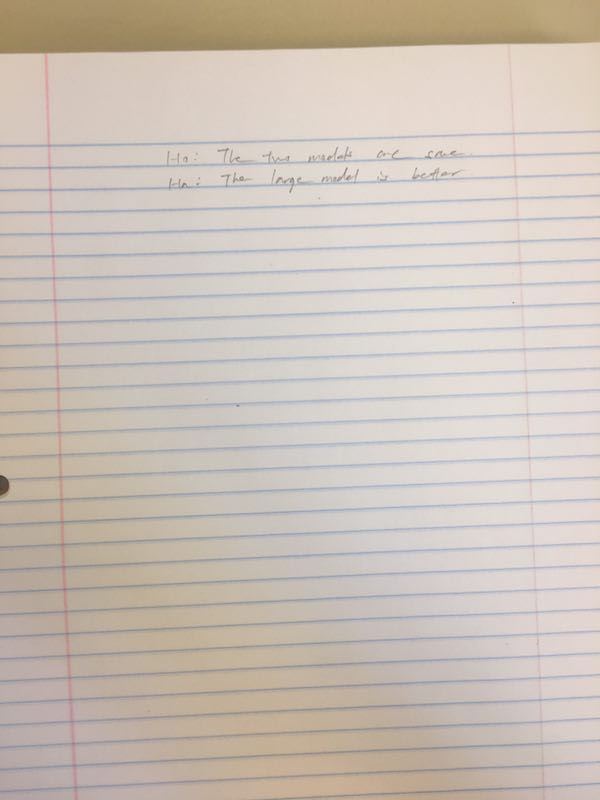 Ho: The two models are same.
Ha: The large model is better